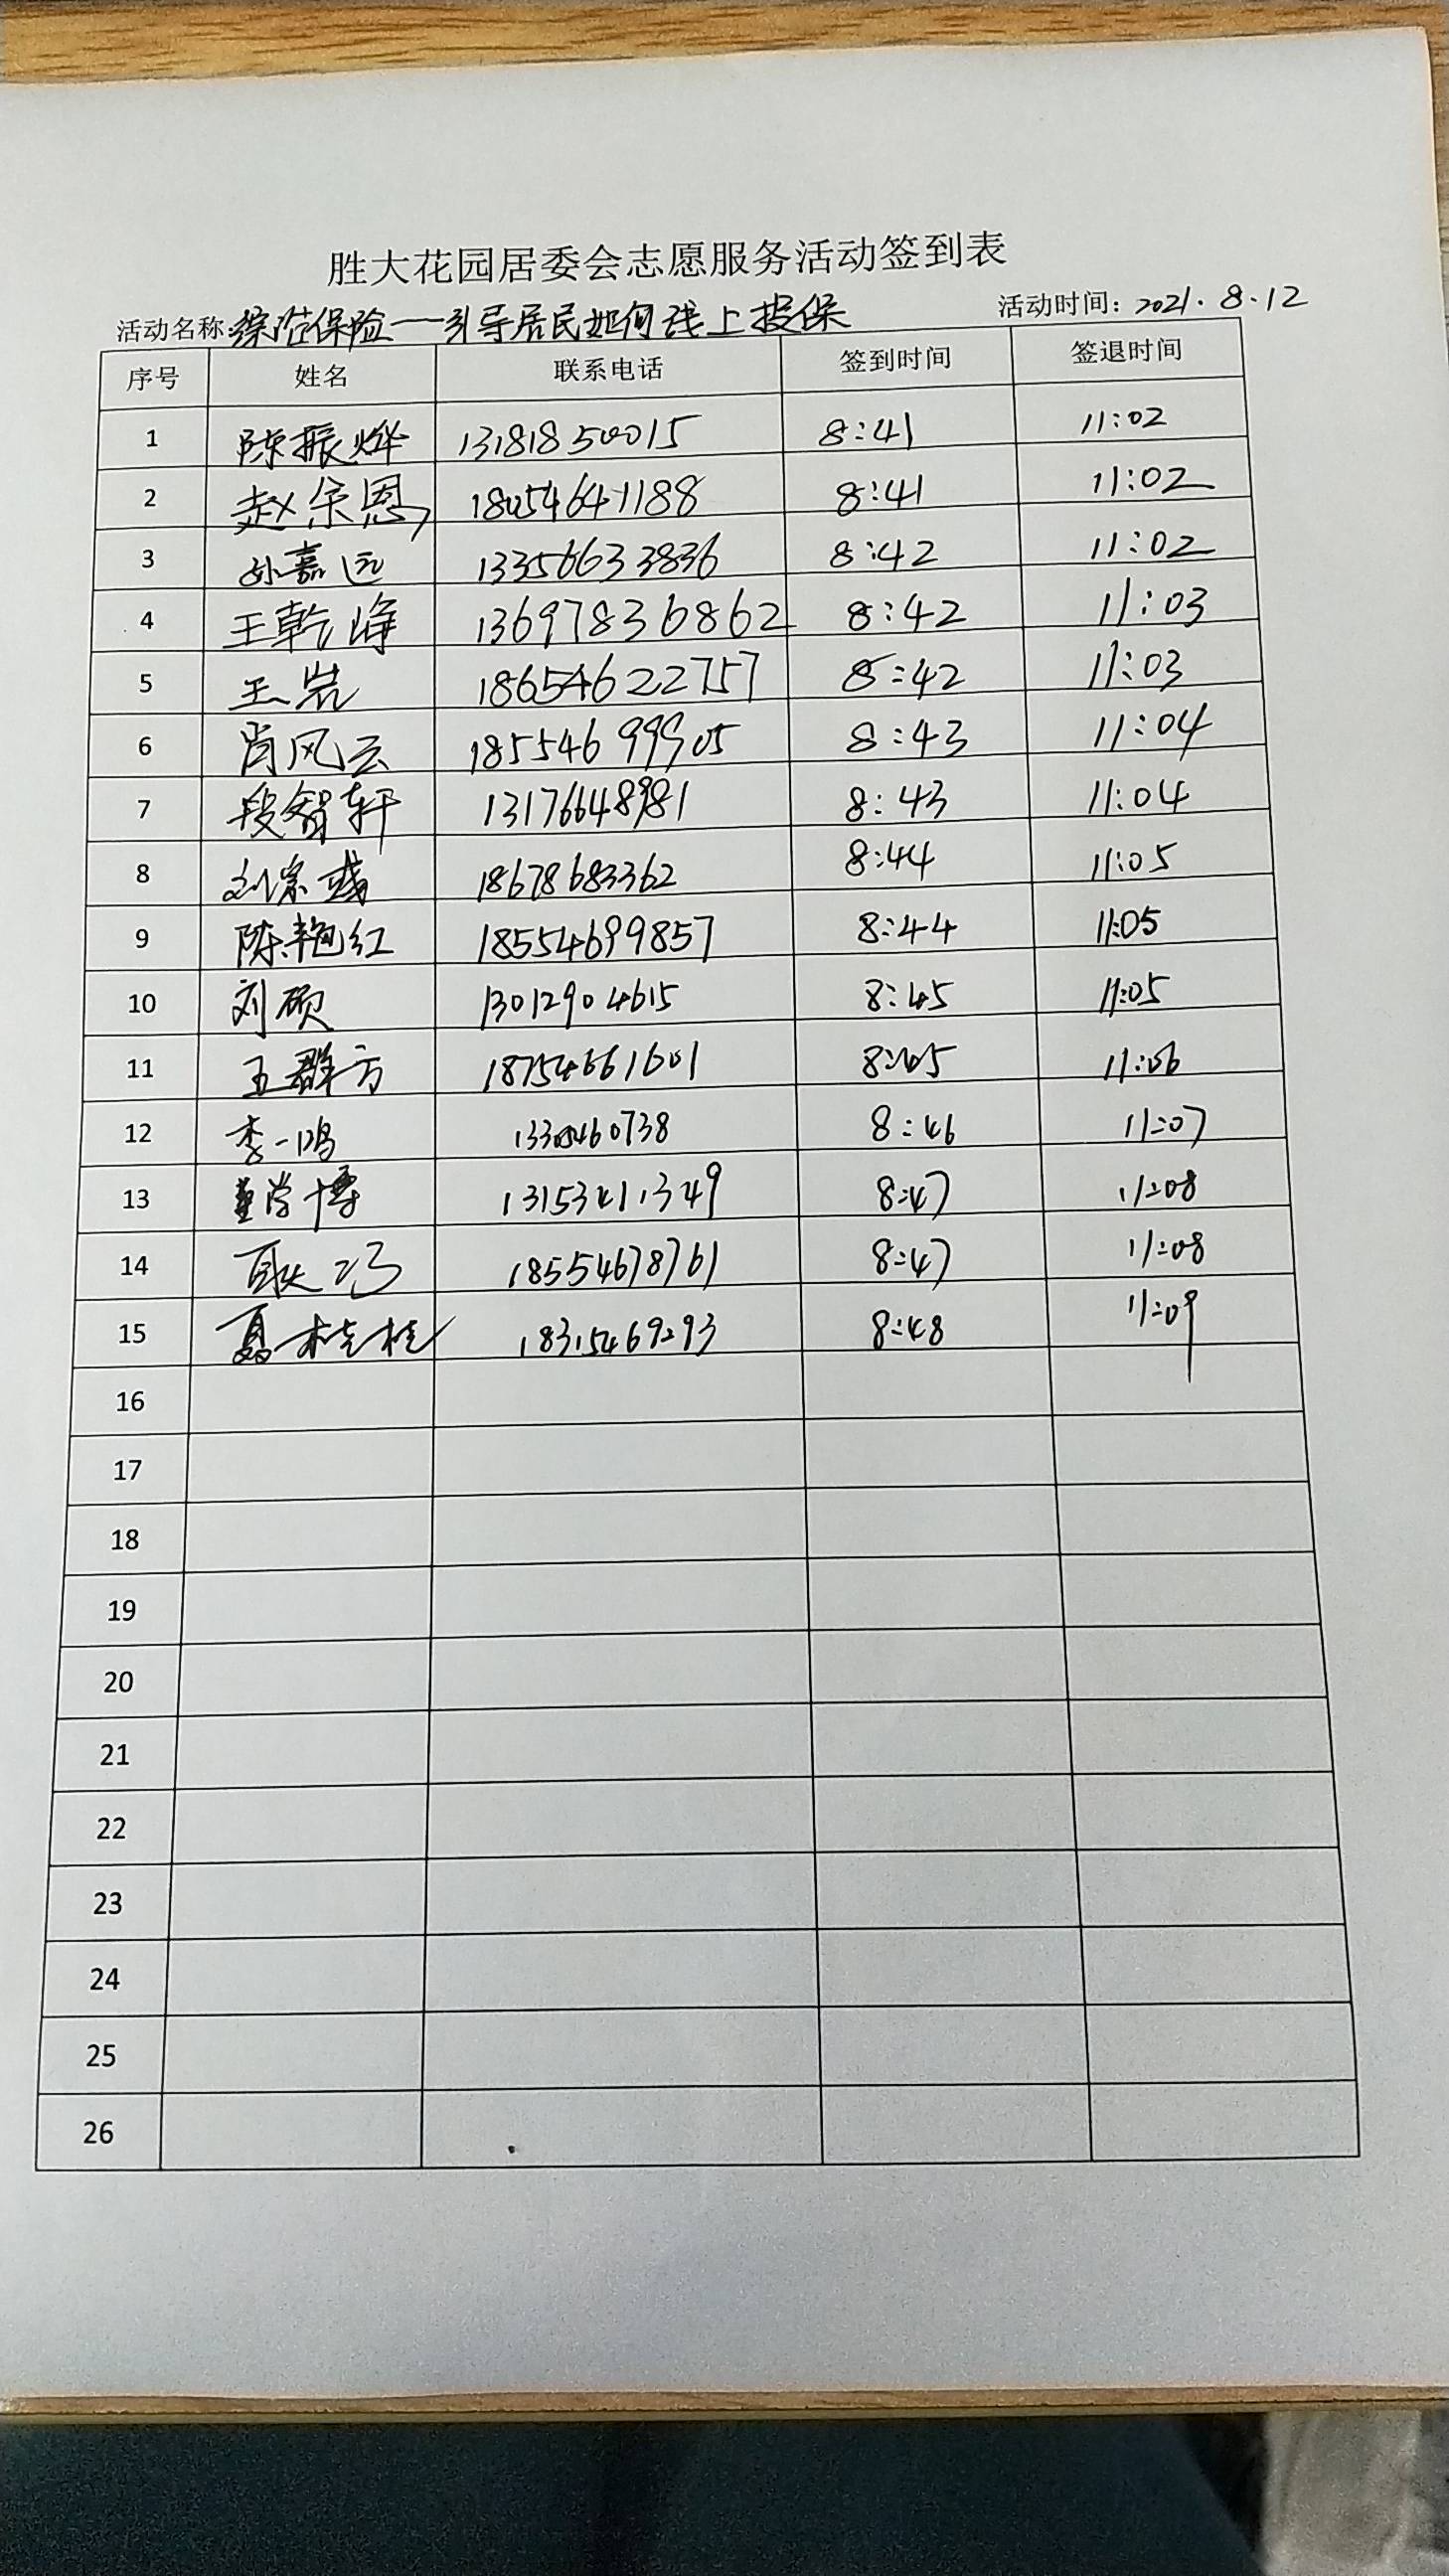 胜大花园居委会志愿服务活动签到表
活动名称:综治保险——引导居民如何线上投保 活动时间: 2021.8.12
序号 姓名 联系电话 签到时间 签退时间
1 陈振烨 13181850015 8:41 11:02
2 赵余恩 18054641188 8:41 11:02
3 孙嘉远 13356633836 8:42 11:02
4 王乾峰 13697836862 8:42 11:03
5 王岩 18654622757 8:42 11:03
6 肖风云 18554699905 8:43 11:04
7 段智轩 13176648981 8:43 11:04
8 刘宗彧 18678683362 8:44 11:05
9 陈艳红 18554699857 8:44 11:05
10 刘硕 13012904615 8:45 11:05
11 王群方 18754661601 8:45 11:06
12 李一鸣 13305460738 8:46 11:07
13 董学博 13153411349 8:47 11:08
14 耿巧 18554678761 8:47 11:08
15 聂桂桂 18315469293 8:48 11:09
16
17
18
19
20
21
22
23
24
25
26